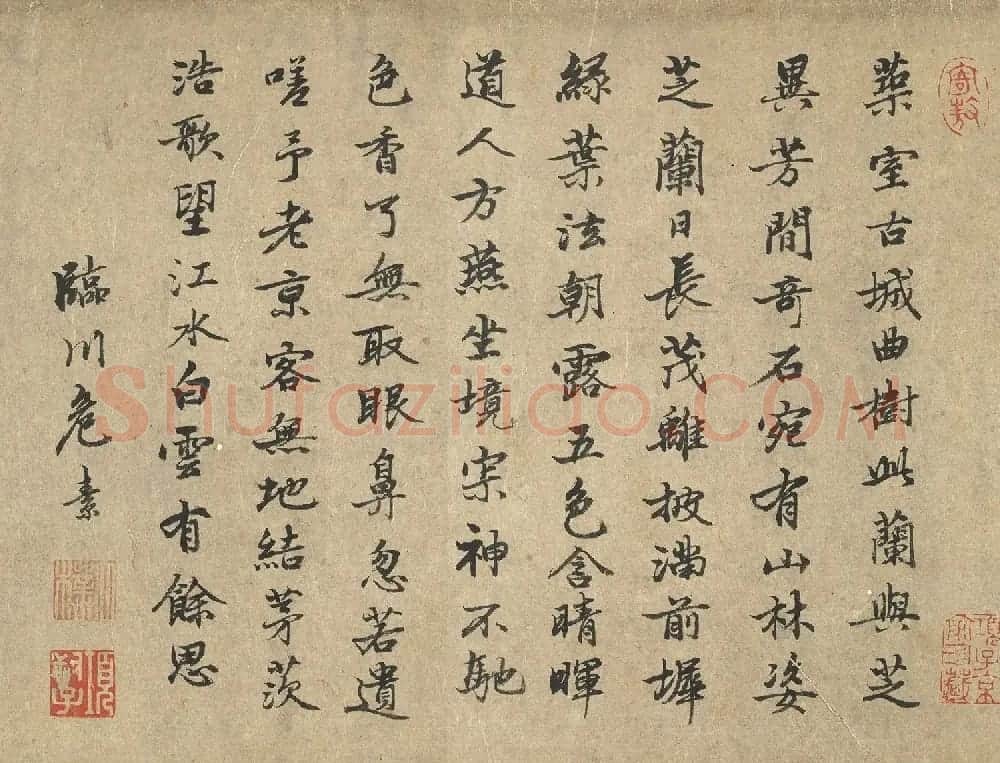 築室古城曲樹此蘭與芝
異芳間奇石宛有山林姿
芝蘭日長茂離披滿前墀
綠葉泫朝露五色含晴暉
道人方燕坐境寂神不馳
色香了無取眼鼻忽若遺
嗟予老京客無地結茅茨
浩歌望江水白雲有餘思
臨川危素
Shufaziliao.COM